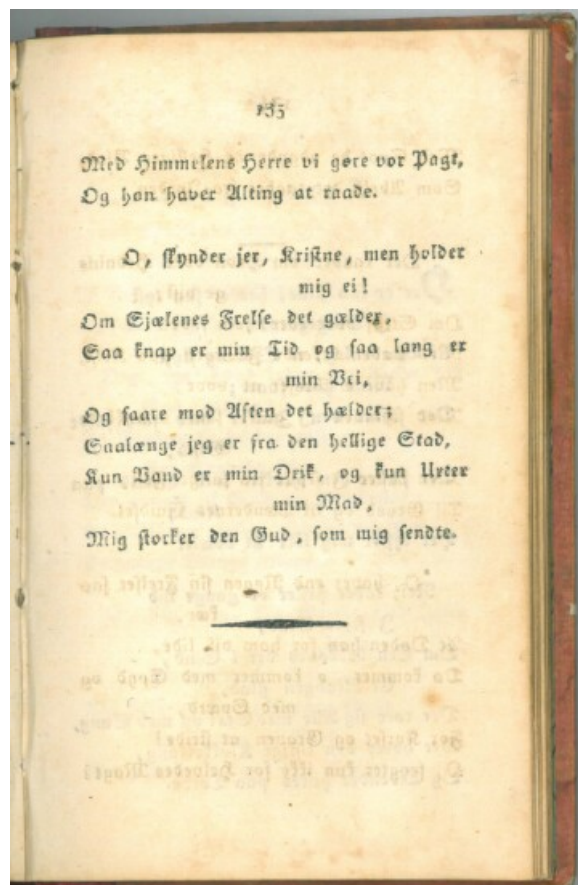 135
Med Himmelens Herre vi gøre vor Pagt,
Og han haver Alting at raade.
O, skynder jer, Kristne, men holder
mig ei!
Om Sjælenes Frelse det gælder,
Saa knap er min Tid og saa lang er
min Vei,
Og saare mod Aften det hælder;
Saalænge jeg er fra den hellige Stad,
Kun Vand er min Drik, og kun Urter
min Mad,
Mig styrker den Gud, som mig sendte.